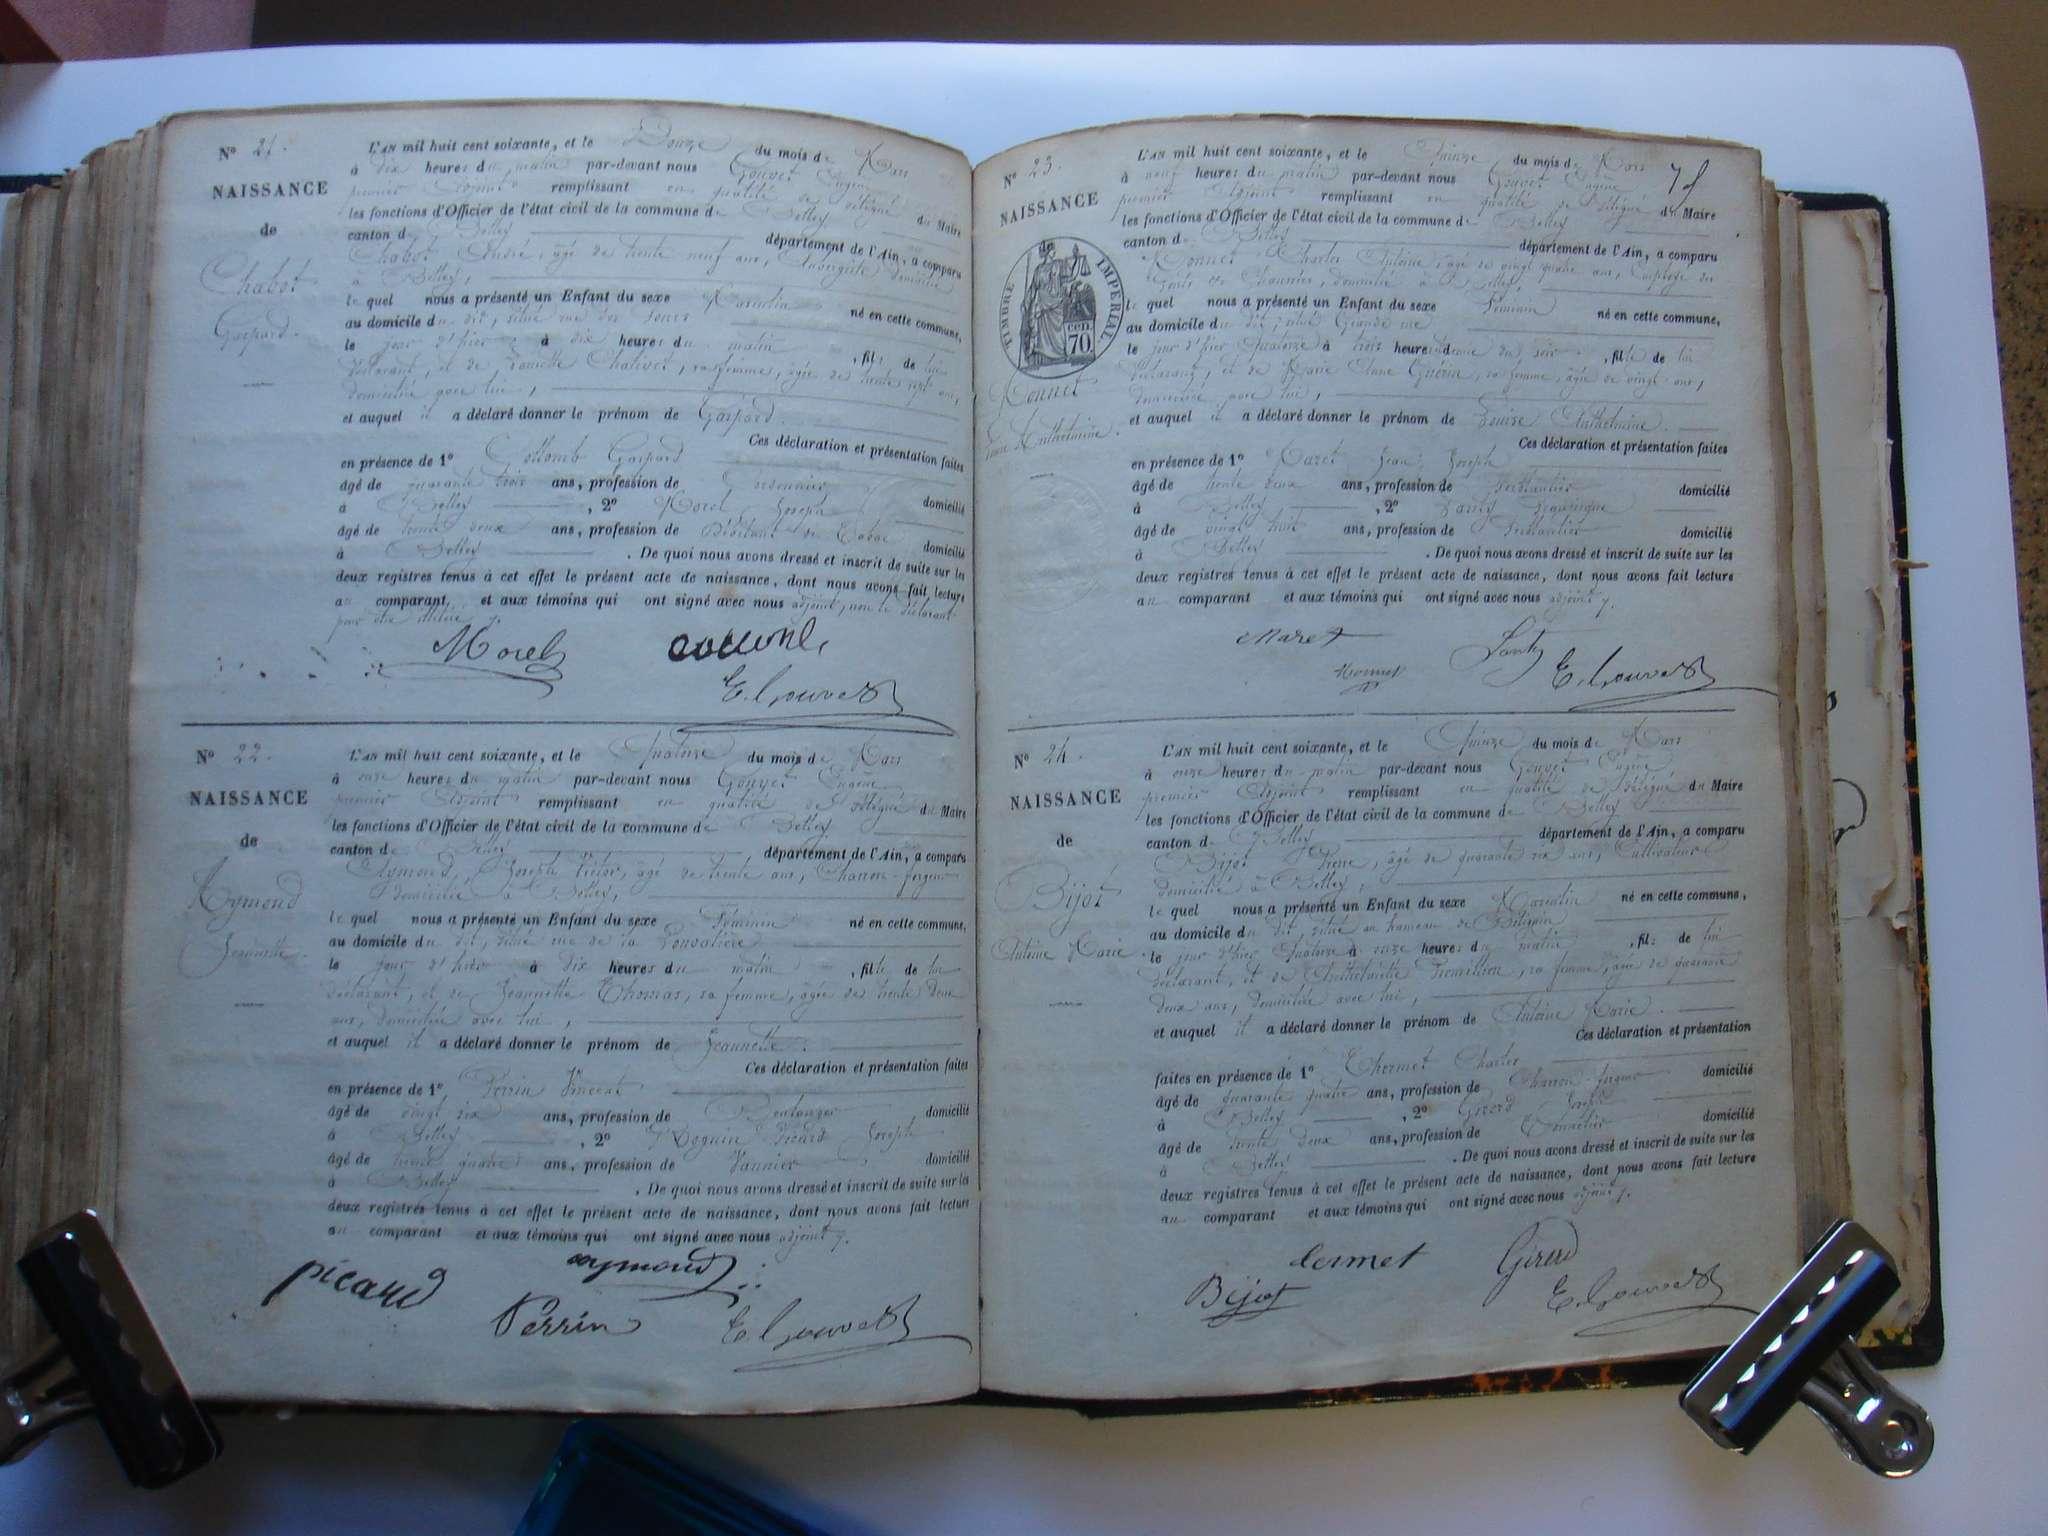 N° 21.
NAISSANCE
de
Chabot
Gaspard.
L'AN mil huit cent soixante, et le Douze du mois de Mars
à dix heures du matin par-devant nous Gouvet Eugène
premier Adjoint remplissant en qualité de délégué du Maire
les fonctions d'Officier de l'état civil de la commune de Belley
canton de Belley département de l'Ain, a comparu
Chabot André, âgé de trente neuf ans, Aubergiste domicilié
à Belley,
le quel nous a présenté un Enfant du sexe Masculin né en cette commune,
au domicile du dit, situé rue des
le jour d'hier à dix heures du matin, fils de lui
déclarant, et de Chalivet, sa femme, âgée de trente sept ans,
domiciliée avec lui,
et auquel il a déclaré donner le prénom de Gaspard.
Ces déclaration et présentation faites
en présence de 1° Collomb Gaspard
âgé de quarante trois ans, profession de Cordonnier domicilié
à Belley, 2° Morel Joseph
âgé de trente deux ans, profession de Débitant de Tabac domicilié
à Belley. De quoi nous avons dressé et inscrit de suite sur les
deux registres tenus à cet effet le présent acte de naissance, dont nous avons fait lecture
au comparant et aux témoins qui ont signé avec nous adjoint, non le déclarant
pour être illitéré.
Morel
E. Gouvet
N° 22.
NAISSANCE
de
Aymond
Jeannette.
L'AN mil huit cent soixante, et le Quatorze du mois de Mars
à onze heures du matin par-devant nous Gouvet Eugène
premier Adjoint remplissant en qualité de délégué du Maire
les fonctions d'Officier de l'état civil de la commune de Belley
canton de Belley département de l'Ain, a comparu
Aymond, Joseph Victor, âgé de trente ans, Charron-forgeur
domicilié à Belley,
le quel nous a présenté un Enfant du sexe Féminin né en cette commune,
au domicile du dit, situé rue de la
le jour d'hier à dix heures du matin, fille de lui
déclarant, et de Jeannette Thomas, sa femme, âgée de trente deux
ans, domiciliée avec lui,
et auquel il a déclaré donner le prénom de Jeannette.
Ces déclaration et présentation faites
en présence de 1° Perrin Vincent
âgé de vingt six ans, profession de Boulanger domicilié
à Belley, 2° Picard Joseph
âgé de trente quatre ans, profession de Vannier domicilié
à Belley. De quoi nous avons dressé et inscrit de suite sur les
deux registres tenus à cet effet le présent acte de naissance, dont nous avons fait lecture
au comparant et aux témoins qui ont signé avec nous adjoint.
picard
aymond
Perrin
E. Gouvet
N° 23.
NAISSANCE
de
TIMBRE IMPERIAL
70 cen
Monnet
Louise Anthelmine.
L'AN mil huit cent soixante, et le Quinze du mois de Mars
à neuf heures du matin par-devant nous Gouvet Eugène
premier Adjoint remplissant en qualité de délégué du Maire
les fonctions d'Officier de l'état civil de la commune de Belley
canton de Belley département de l'Ain, a comparu
Monnet Charles Antoine, âgé de vingt quatre ans, Employé des
Ponts et Chaussées, domicilié à Belley,
le quel nous a présenté un Enfant du sexe Féminin né en cette commune,
au domicile du dit, situé Grande rue
le jour d'hier Quatorze à trois heures demie du soir, fille de lui
déclarant, et de Marie Anne Guérin, sa femme, âgée de vingt ans,
domiciliée avec lui,
et auquel il a déclaré donner le prénom de Louise Anthelmine.
Ces déclaration et présentation faites
en présence de 1° Maret Jean Joseph
âgé de trente deux ans, profession de Ferblantier domicilié
à Belley, 2° Santy Dominique
âgé de vingt huit ans, profession de Ferblantier domicilié
à Belley. De quoi nous avons dressé et inscrit de suite sur les
deux registres tenus à cet effet le présent acte de naissance, dont nous avons fait lecture
au comparant et aux témoins qui ont signé avec nous adjoint.
Maret
Monnet
Santy
E. Gouvet
N° 24.
NAISSANCE
de
Bijot
Antoine Marie.
L'AN mil huit cent soixante, et le Quinze du mois de Mars
à onze heures du matin par-devant nous Gouvet Eugène
premier Adjoint remplissant en qualité de délégué du Maire
les fonctions d'Officier de l'état civil de la commune de Belley
canton de Belley département de l'Ain, a comparu
Bijot Pierre, âgé de quarante six ans, Cultivateur
domicilié à Belley,
le quel nous a présenté un Enfant du sexe Masculin né en cette commune,
au domicile du dit, situé au hameau de
le jour d'hier Quatorze à onze heures du matin, fils de lui
déclarant, et de Anthelmette, sa femme, âgée de quarante
deux ans, domiciliée avec lui,
et auquel il a déclaré donner le prénom de Antoine Marie.
Ces déclaration et présentation
faites en présence de 1° Thermet Charles
âgé de quarante quatre ans, profession de Charron-forgeur domicilié
à Belley, 2° Girerd Joseph
âgé de trente deux ans, profession de Tonnelier domicilié
à Belley. De quoi nous avons dressé et inscrit de suite sur les
deux registres tenus à cet effet le présent acte de naissance, dont nous avons fait lecture
au comparant et aux témoins qui ont signé avec nous adjoint.
Bijot
Girerd
E. Gouvet